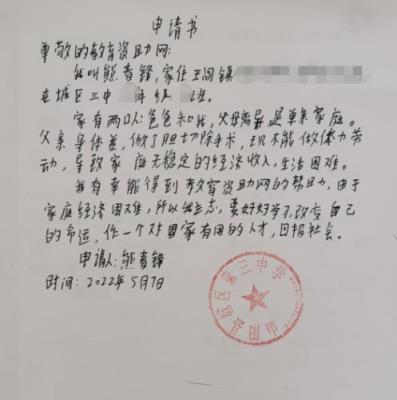 申请书
尊敬的教育资助网:
我叫熊青锋,家住王阎镇
在城区三中 年级 班。
家有两口人爸爸和我,父母离异是单亲家庭。
父亲身体差,做了胆切除手术,现不能做体力劳
动,导致家庭无稳定的经济收入,生活困难。
我有幸能得到教育资助网的帮助,由于
家庭经济困难,所以我立志,要好好学习,改变自己
的命运,作一个对国家有用的人才,回报社会。
申请人:熊青锋
时间:2022年5月7日
山阳县城区第三中学